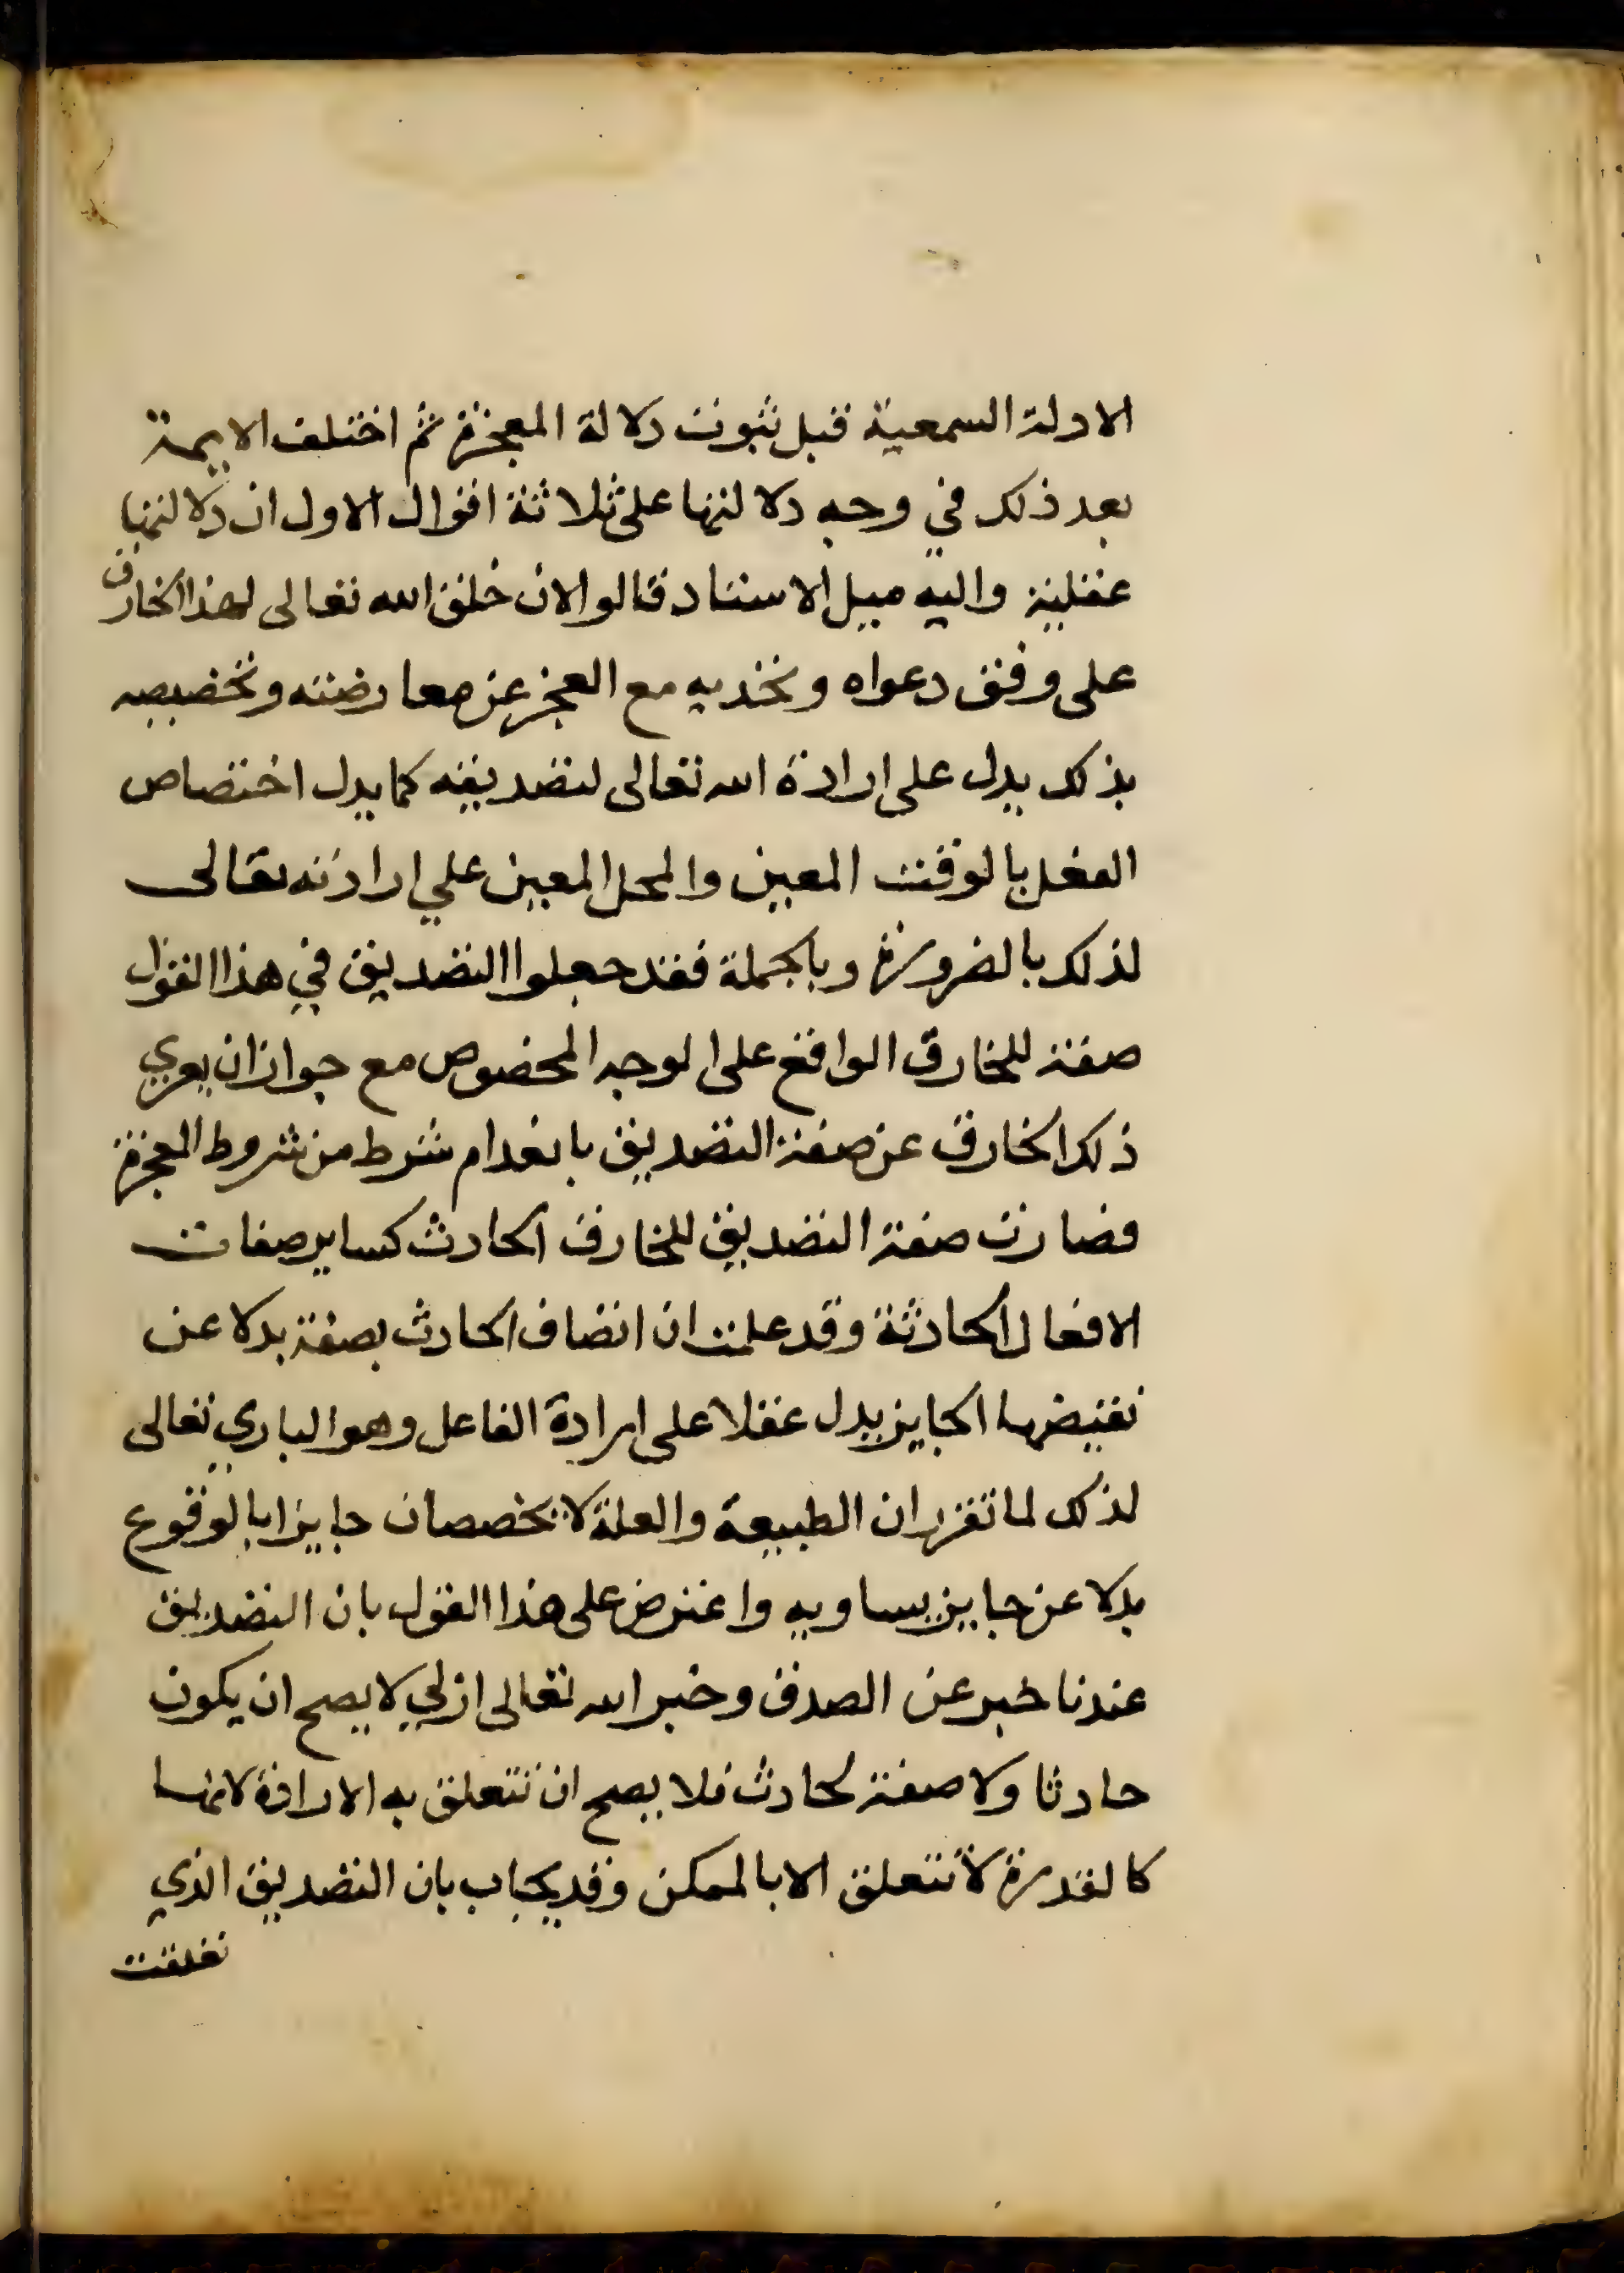 الادلة السمعية قبل ثبوت دلالة المعجزة ثم اختلف الايمة
بعد ذلك في وجه دلالتها على ثلاثة اقوال الاول ان دلالتها
عقلية واليه ميل الاستاد قالوا لان خلق الله تعالى لهذا الخارق
على وفق دعواه وتحديه مع العجز عن معارضته وتخصيصه
بذلك يدل على ارادة الله تعالى لتصديقه كما يدل اختصاص
الفعل بالوقت المعين والمحل المعين علي ارادته تعالى
لذلك بالضرورة وبالجملة فقد جعلوا التصديق في هذا القول
صفة للخارق الواقع على الوجه المخصوص مع جواز ان يعري
ذلك الخارق عن صفة التصديق بانعدام شرط من شروط المعجزة
فصارت صفة التصديق للخارق الحادث كساير صفات
الافعال الحادثة وقد علمت ان اتصاف الحادث بصفة بدلا عن
نقيضها الجايز يدل عقلا على ارادة الفاعل وهو الباري تعالى
لذلك لما تقرر ان الطبيعة والعلة لا يخصصان جايزا بالوقوع
بدلا عن جايز يساويه واعترض على هذا القول بان التصديق
عندنا خبر عن الصدق وخبر الله تعالى ازلي لا يصح ان يكون
حادثا ولا صفة لحادث فلا يصح ان تتعلق به الارادة لانها
كالقدرة لا تتعلق الا بالممكن وقد يجاب بان التصديق الذي
تعلقت